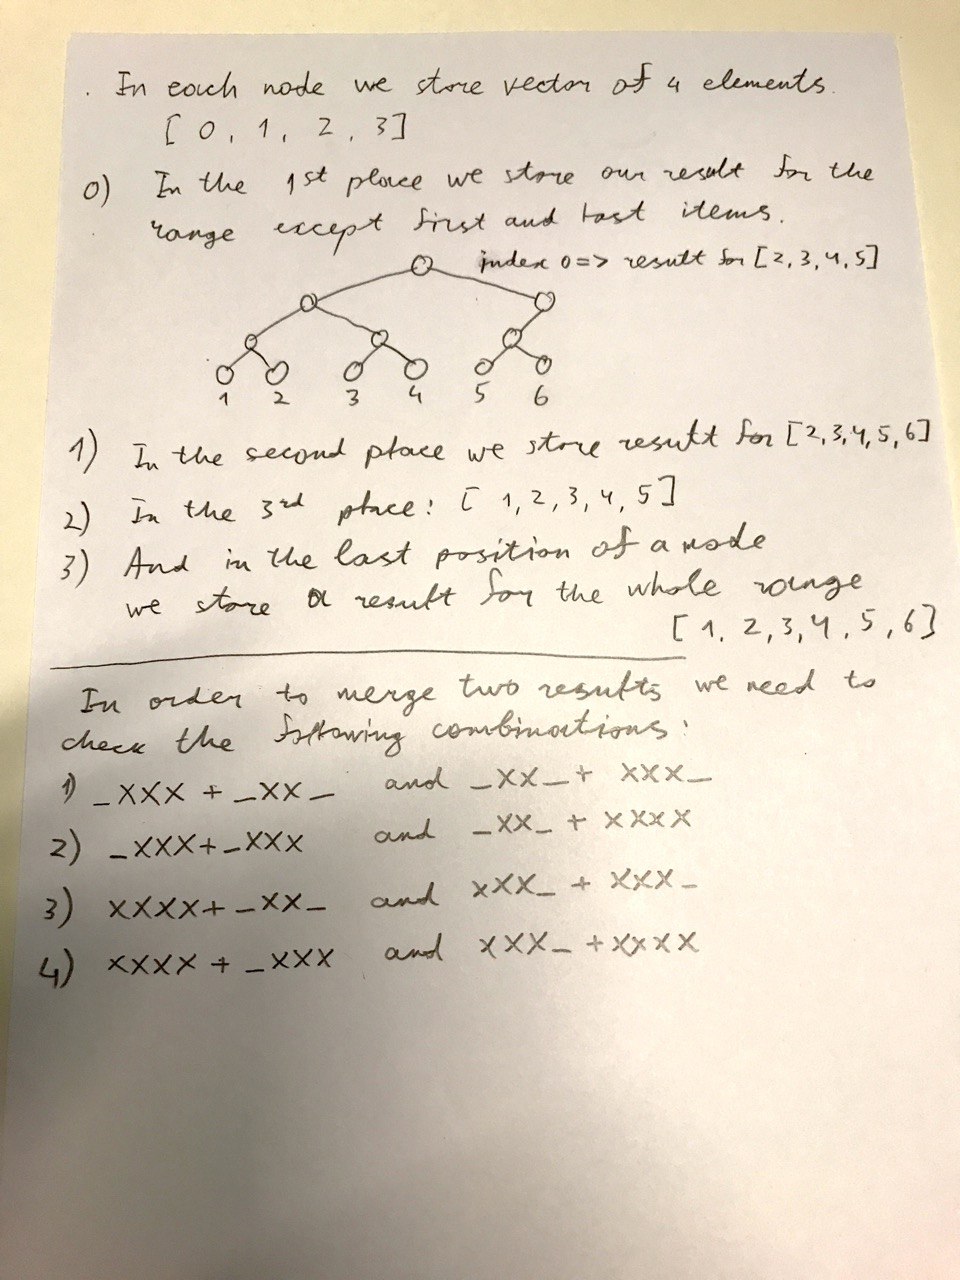 . In each node we store vector of 4 elements.
[ 0, 1, 2, 3]
0) In the 1st place we store our result for the
range except first and last items.
index 0 => result for [2,3,4,5]
1 2 3 4 5 6
1) In the second place we store result for [2,3,4,5,6]
2) In the 3rd place: [ 1,2,3,4,5]
3) And in the last position of a node
we store a result for the whole range
[ 1, 2,3,4,5,6]
In order to merge two results we need to
check the following combinations:
1) _XXX + _XX_ and _XX_ + XXX_
2) _XXX+_XXX and _XX_ + XXXX
3) XXXX+_XX_ and XXX_ + XXX_
4) XXXX + _XXX and XXX_ +XXXX